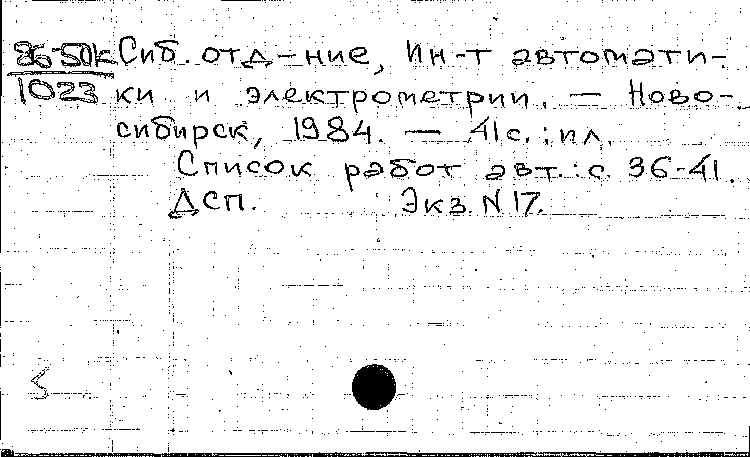 86-50к Сиб. отд-ние, Ин-т автомати-
1023 ки и электрометрии. — Ново-
сибирск, 1984. — 41с.: ил.
Список работ авт.: с. 36-41.
ДСП. Экз. N 17.